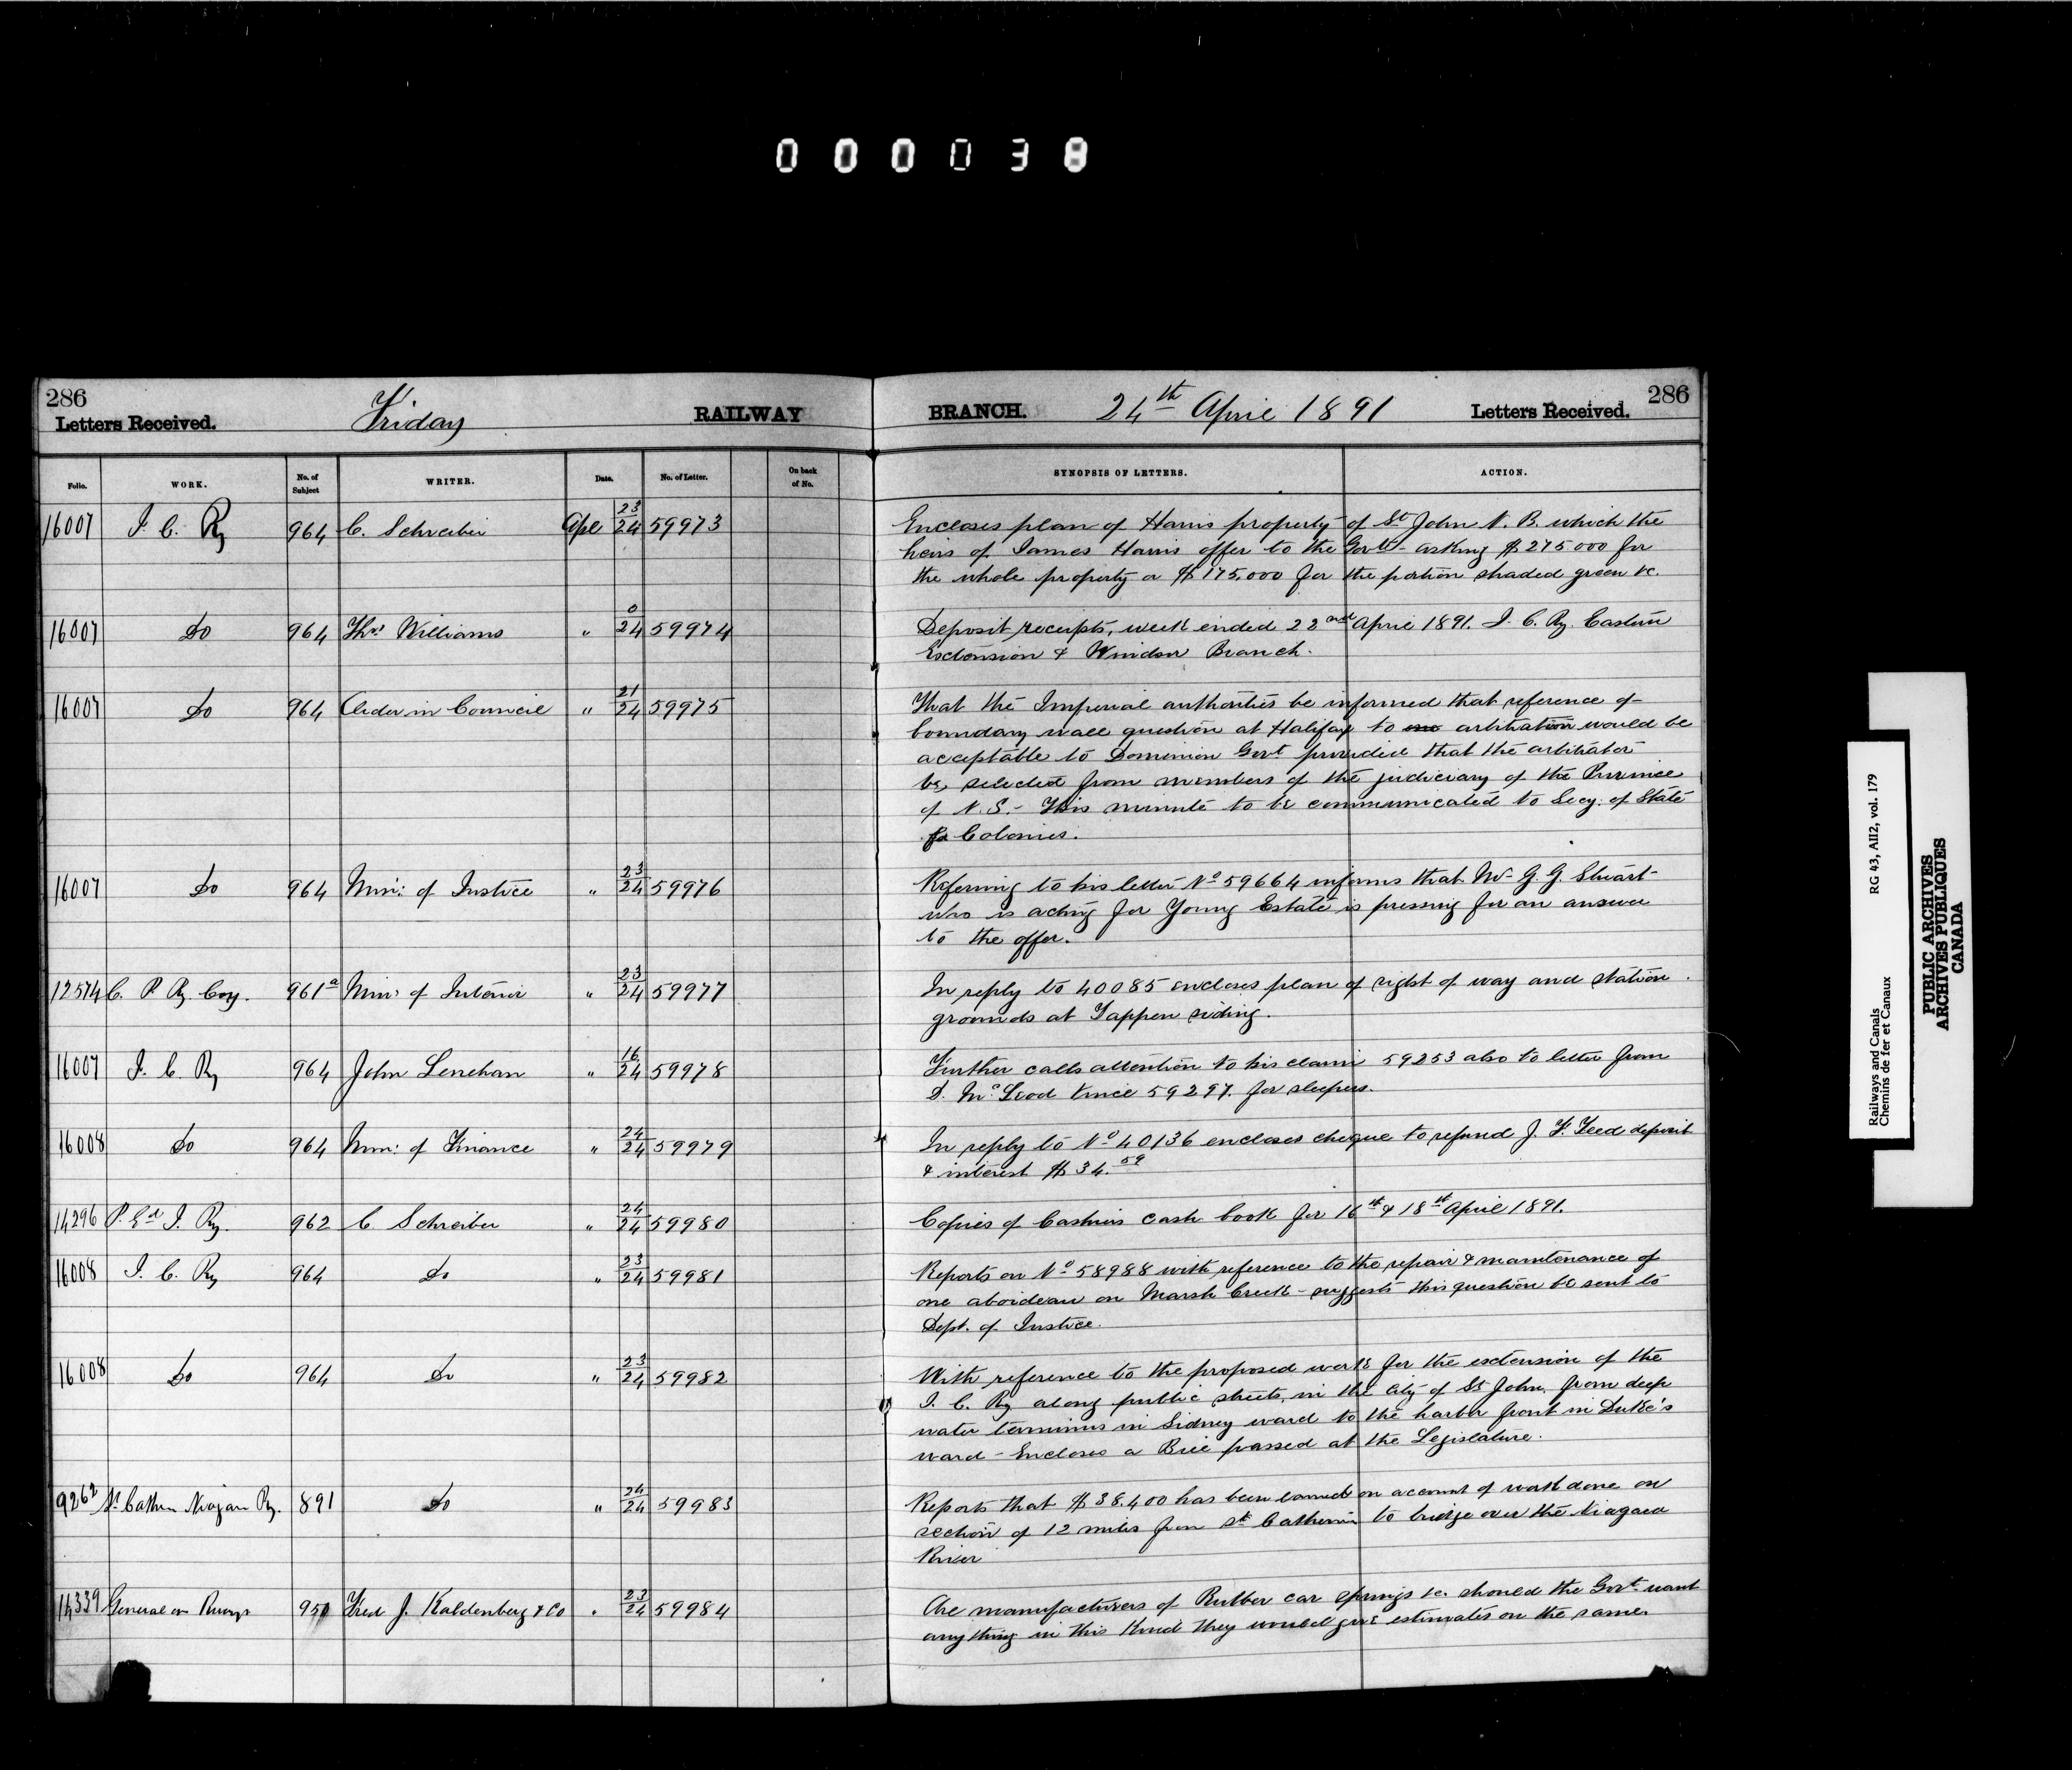 0 0 0 0 3 8
286
Letters Received.
Friday
RAILWAY
BRANCH.
24th April 1891
Letters Received.
286
Folio. WORK. No. of Subject WRITER. Date. No. of Letter. On back of No. SYNOPSIS OF LETTERS. ACTION.
16007 I. C. Ry 964 C. Schreiber Apl 23/24 59973 Encloses plan of Harris property of St John N. B. which the
heirs of James Harris offer to the Govt - asking $275000 for
the whole property or $175,000 for the portion shaded green &c.
16007 Do 964 Thos Williams " 0/24 59974 Deposit receipts, week ended 22nd April 1891. I. C. Ry. Eastern
Extension & Windsor Branch.
16007 Do 964 Order in Council " 21/24 59975 That the Imperial authorities be informed that reference of
boundary wall question at Halifax to arbitration would be
acceptable to Dominion Govt provided that the arbitrator
be selected from members of the judiciary of the Province
of N. S. - This minute to be communicated to Secy. of State
for Colonies.
16007 Do 964 Min: of Justice " 23/24 59976 Referring to his letter No 59664 informs that Mr G. G. Stuart
who is acting for Young Estate is pressing for an answer
to the offer.
12574 C. P. Ry Coy. 961a Min: of Interior " 23/24 59977 In reply to 40085 encloses plan of right of way and station
grounds at Tappen siding.
16007 I. C. Ry 964 John Lenehan " 16/24 59978 Further calls attention to his claim 59253 also to letter from
D. McLeod Vince 59297. for sleepers.
16008 Do 964 Min: of Finance " 24/24 59979 In reply to No 40136 encloses cheque to refund J. F. Teed deposit
& interest $34.59
14296 P. Ed I. Ry. 962 C. Schreiber " 24/24 59980 Copies of Cashiers cash book for 16th & 18th April 1891.
16008 I. C. Ry 964 Do " 23/24 59981 Reports on No 58988 with reference to the repair & maintenance of
one aboideau on Marsh Creek - suggests this question be sent to
Dept. of Justice.
16008 Do 964 Do " 23/24 59982 With reference to the proposed works for the extension of the
I. C. Ry along public streets, in the City of St John, from deep
water terminus in Sidney ward to the harbor front in Duke's
ward - Encloses a Bill passed at the Legislature.
9262 St Cathn Niagara Ry. 891 Do " 24/24 59983 Reports that $38,400 has been earned on account of work done on
section of 12 miles from St Catherines to bridge over the Niagara
River
14339 General on Rways 950 Fred J. Kaldenberg & Co " 23/24 59984 Are manufacturers of Rubber car springs &c. should the Govt want
anything in this kind they would give estimates on the same.
Railways and Canals
Chemins de fer et Canaux
RG 43, AII2, vol. 179
PUBLIC ARCHIVES
ARCHIVES PUBLIQUES
CANADA